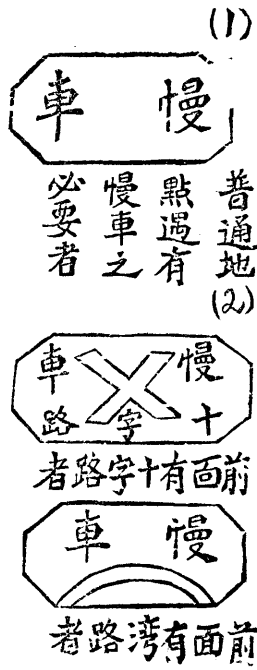 (1)
慢車
普通地
點遇有
慢車之
必要者
(2)
慢車
十字路
前面有十字路者
慢車
前面有湾路者